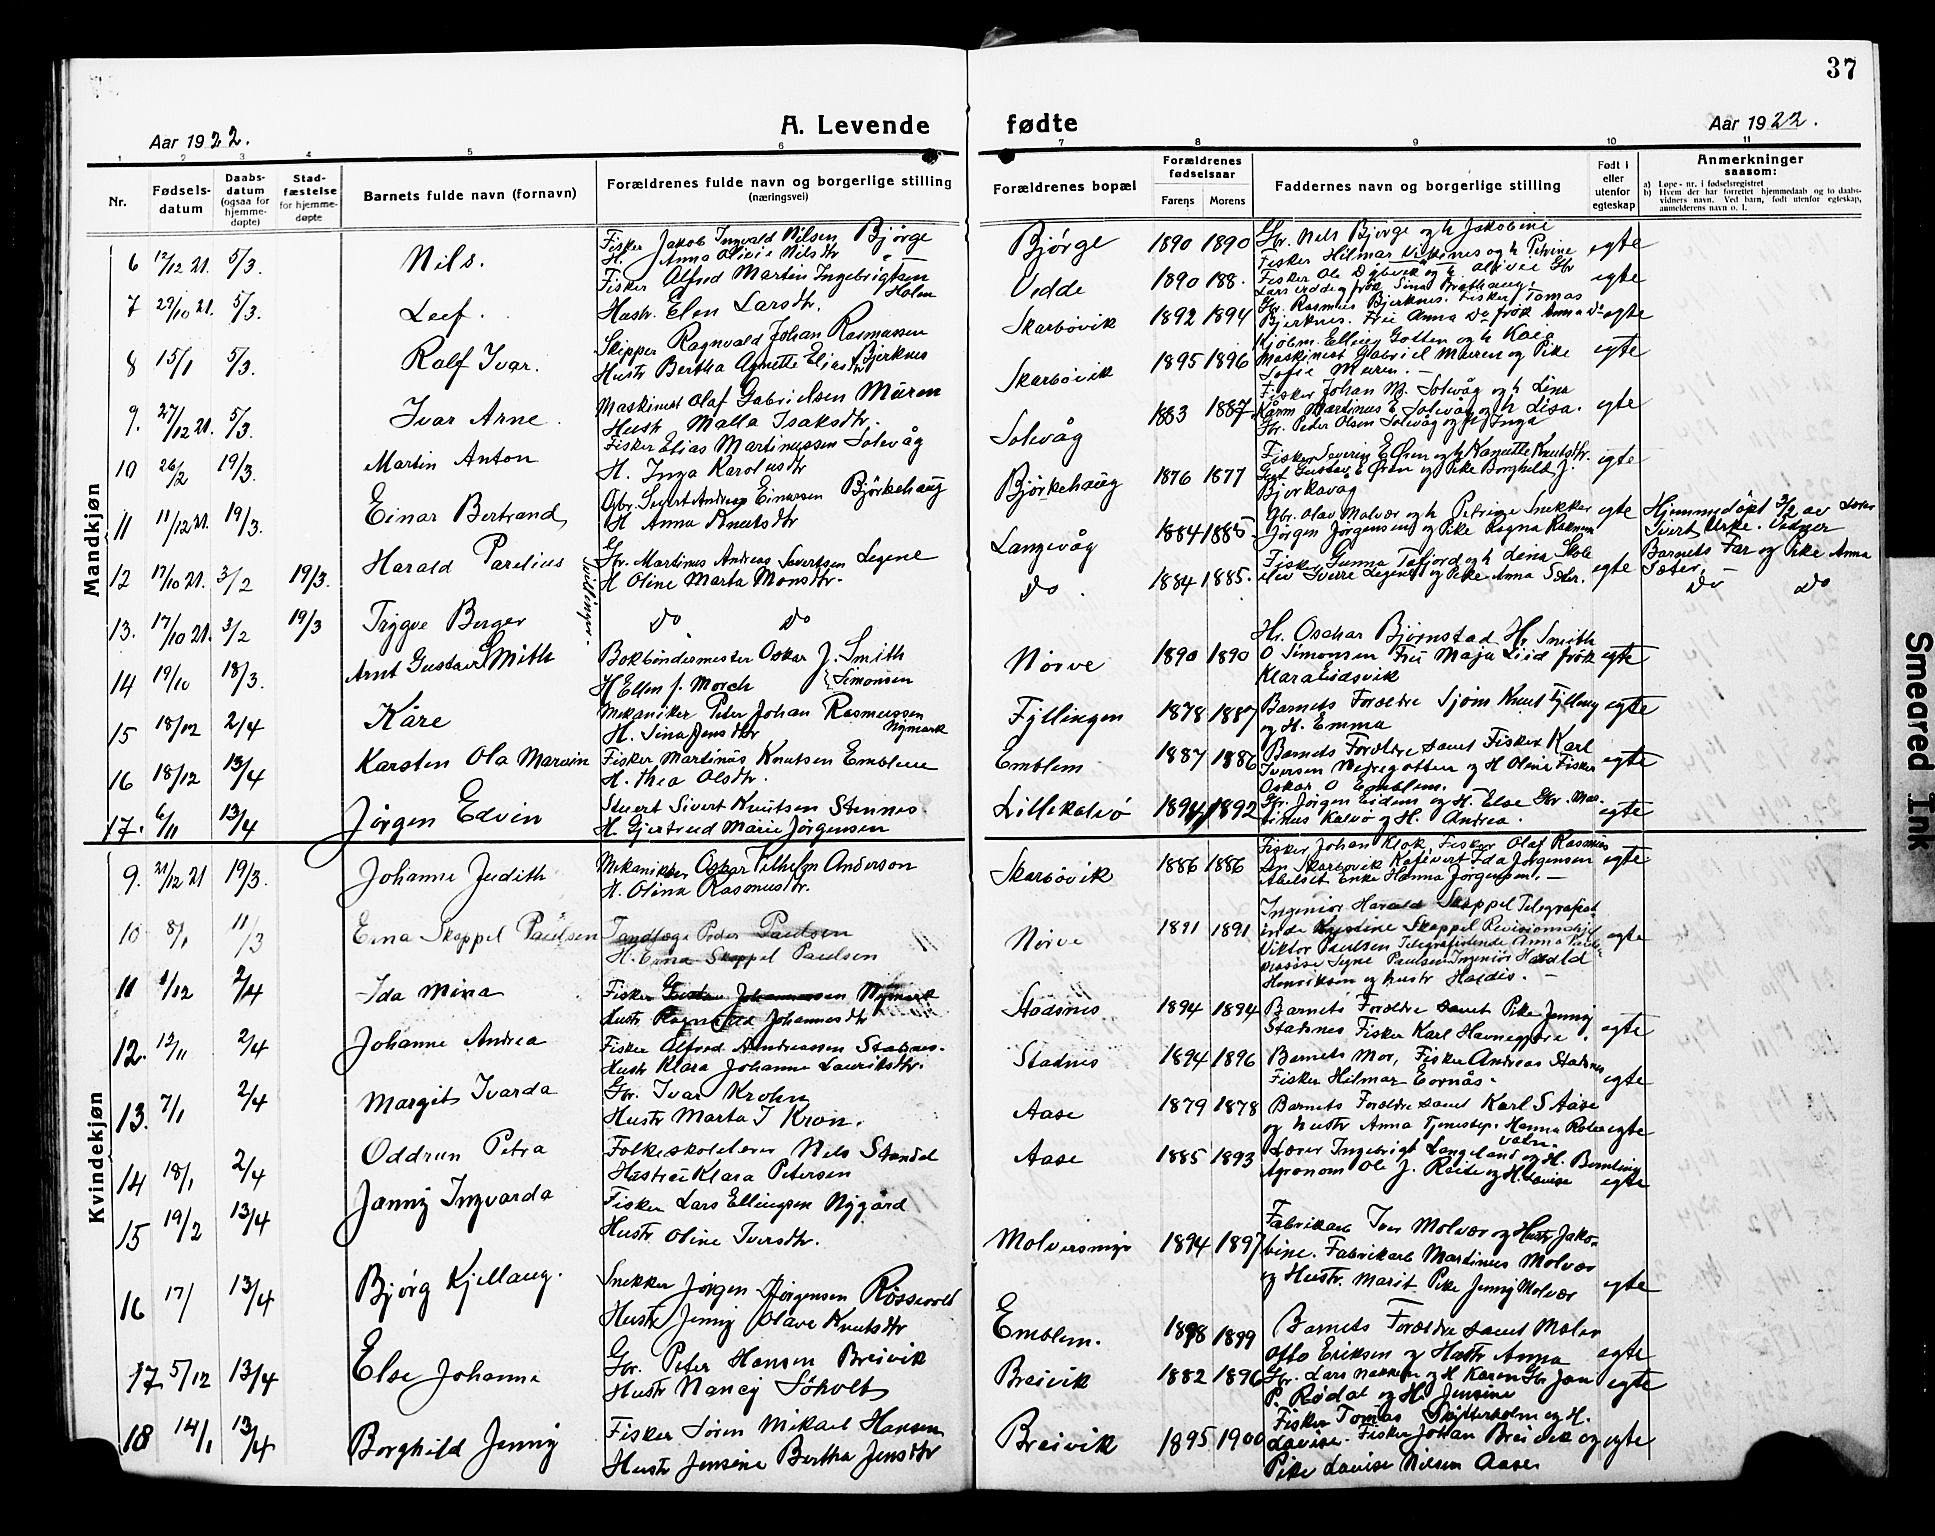 37
A. Levende fødte
Aar 1922.
Aar 1922.
1 2 3 4 5 6 7 8 9 10 11
Nr.
Fødselsdatum
Daabsdatum (ogsaa for hjemmedøpte)
Stadfæstelse for hjemmedøpte
Barnets fulde navn (fornavn)
Forældrenes fulde navn og borgerlige stilling (næringsvei)
Forældrenes bopæl
Forældrenes fødselsaar
Farens Morens
Faddernes navn og borgerlige stilling
Født i eller utenfor egteskap
Anmerkninger saasom:
a) Løpe-nr. i fødselsregistret
b) Hvem der har forrettet hjemmedaab og to daabsvidners navn. Ved barn, født utenfor egteskap, anmelderens navn o. l.
Mandkjøn
6 12/12 21. 5/3. Nils. Fisker Jakob Ingvald Nilsen Bjørge
H. Anna Olivie Nilsdtr
Bjørge 1890 1890 Gbr. Nils Bjørge og h Jakobine
Fisker Hilmar og h Petrine egte
7 29/10 21. 5/3. Leif. Fisker Alfred Martin Ingebrigtsen Holm
Hustr. Elen Larsdtr.
Vedde 1890 188. Fisker Ole og h. Olivie Gbr
Lars Vedde og frøk Sina egte
8 15/1 5/3. Rolf Ivar. Skipper Ragnvald Johan Rasmussen Bjerknes
Hustr Bertha Agnette Eliasdtr
Skarbøvik 1892 1894 Gbr. Rasmus Bjerknes. Fisker Tomas
Bjerknes. Fru Anna Do frøk Anna Do egte
9. 27/12 21. 5/3. Ivar Arne. Maskinist Olaf Gabrielsen Muren
Hustr Malla Isaksdtr.
Skarbøvik 1895 1896 Kjøbm. Elling Gotten og h Kaia
Maskinist Gabriel Muren og Pike
Sofie Muren. — egte
10 26/2 19/3. Martin Anton Fisker Elias Martinussen Solevåg
H. Inga Karolusdtr
Solevåg 1883 1887 Fisker Johan M. Solevåg og h Lina
Martinus E. Solevåg og h Lisa.
Gbr. Peder Olsen Solevåg og h Inga egte
11 11/12 21. 19/3. Einar Bertrand Gbr. Sivert Andreas Einarsen Bjørkehaug
H Anna Knutsdtr
Bjørkehaug 1876 1877 Fisker Severin E Øren og h Kanutte Knutsdtr.
Gustav E Øren og Pike Borghild J.
Bjørkavåg egte
12 17/10 21. 3/2 19/3. Harald Parelius Gbr. Martinus Andreas Sivertsen Legene
H Oline Marta Monsdtr.
Tvillinger.
Langevåg 1884 1885. Gbr. Olav Molvær og h Petrine Snekker
Jørgen Jørgensen og Pike Ragna egte
Hjemmedøpt 3/2 av
Sivert Urke. Vidner
Barnets Far og Pike Anna
Sæter.
13. 17/10 21. 3/2 19/3 Trygve Berger Do Do
Do. 1884 1885. Fisker Gunnar Tafjord og h Lina Skole
elev Sverre Legene og Pike Anna Sæter. egte
Do Do
14 19/10 18/3. Arnt Gustav Smith Bokbindermester Oskar J. Smith Simonsen
H Ellen f. Morch
Nørve 1890 1890 Hr. Oschar Bjørnstad Hr. Smith
O Simonsen Fru Maja Liid frøk
Klara Eidsvik egte
15 18/12 2/4 Kåre Mekaniker Peter Johan Rasmussen Nymark
H. Sina Jensdtr
Fyllingen 1878 1887 Barnets Forældre Sjøm Knut Fylling
og H. Emma egte
16 18/12 13/4 Karsten Ola Marvin Fisker Martinus Knutsen Emblem
H. Thea Olsdtr.
Emblem 1887 1886 Barnets Forældre samt Fisker Karl
Iversen Nedregotten og H Olina Fisker
Oskar O Emblem. egte
17. 6/11 13/4 Jørgen Edvin Stuert Sivert Knutsen Stennes
H. Gjertrud Marie Jørgensen
Lillekalvø 1894 1892 Gbr. Jørgen Eidem og H. Else Gbr. Martinus
Kalvø og H. Andrea. egte
Kvindekjøn
9. 21/12 21 19/3. Johanne Judith Mekaniker Oskar Vilhelm Anderson
H. Olina Rasmusdtr.
Skarbøvik 1886 1886 Fisker Johan Klok, Fisker Olaf Rasmussen
Skarbøvik Kafévert Ida Jørgensen
Abelset Enke Hanna Jørgensen. — egte
10 8/1 11/3 Erna Skoppel Paulsen Tandlæge Peder Paulsen
H. Erna Skoppel Paulsen
Nørve 1891 1891 Ingeniør Harald Skoppel Telegrafist
inde Kristine Skoppel Revisionschef
Viktor Paulsen Telegrafistinde Anna
Signe Paulsen Ingeniør Harald
Henriksen og hustr Haldis. — egte
11 1/12 2/4 Ida Mina Fisker Gustav Johannessen Nymark
Hustr Ragnhild Johannesdtr
Stadsnes 1894 1894 Barnets Forældre samt Pike Jenny
Stadsnes Fisker Karl Havnegjøre. egte
12. 12/11 2/4 Johanne Andrea Fisker Alfred Andreassen Stadsnes.
Hustr Klara Johanne Lauritsdtr.
Stadnes 1894 1896 Barnets Mor, Fisker Andreas Stadsnes
Fisker Hilmar Eornås. egte
13. 7/1 2/4 Margit Ivarda Gbr. Ivar Krohn
Hustr Marta I Kron.
Aase 1879 1878 Barnets Forældre samt Karl S Aase
og hustr Anna Tjenestep. Hanna egte
14 18/1 2/4 Oddrun Petra Folkeskolelærer Nils Standal
Hustru Klara Petersen
Aase 1885 1893 Lærer Ingebrigt Langeland og H.
Agronom Ole J. Reite og H. Lovise egte
15 19/2 13/4 Janny Ingvarda Fisker Lars Ellingsen Nygård
Hustr Oline Iversdtr.
Molversmyr 1894 1897 Fabrikarb Iver Molvær og Hustr Jakobine.
Fabrikarb Martinus Molvær
og Hustr. Marit Pike Jenny Molvær egte
16 17/ 13/4 Bjørg Kjellaug. Snekker Jørgen Jørgensen Røssevold
Hustr Jenny Olave Knutsdtr
Emblem. 1898 1899 Barnets Forældre samt Maler
Otto Eriksen og Hustr Anna egte
17 5/12 13/4 Else Johanna Gbr. Peter Hansen Breivik
Hustr Nancy Søholt
Breivik 1882 1896 Gbr. Lars Nakken og H Karen Gbr Jan
P. Rødal og H. Jensine egte
18 14/1 13/4 Borghild Jenny Fisker Søren Mikael Hansen
Hustr Jensine Bertha Jensdtr
Breivik 1895 1900 Fisker Tomas Skytterholm og H.
Lovise. Fisker Johan Breivik og
Pike Lovise Nilsen Aase egte
Smeared Ink